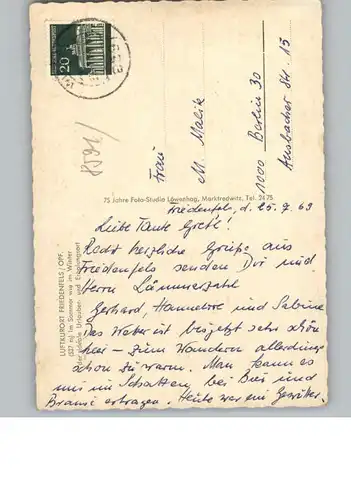 20
8591/
Frau
M. Malik
1000 Berlin 30
Ansbacher Str. 15
75 Jahre Foto-Studio Löwenhag, Marktredwitz, Tel. 2475
LUFTKURORT FRIEDENFELS / OPF.
(537 m) im Sommer wie im Winter
der ideale Urlauber- und Erholungsort
Friedenfels, d. 25. 7. 69
Liebe Tante Grete!
Recht herzliche Grüße aus
Friedenfels senden Dir und
Herrn Lämmerzahl
Gerhard, Hannelore und Sabine
Das Wetter ist bis jetzt sehr schön
hier – zum Wandern allerdings
schon zu warm. Man kann es
nur im Schatten, bei Bier und
Brause ertragen. Heute war ein Gewitter.